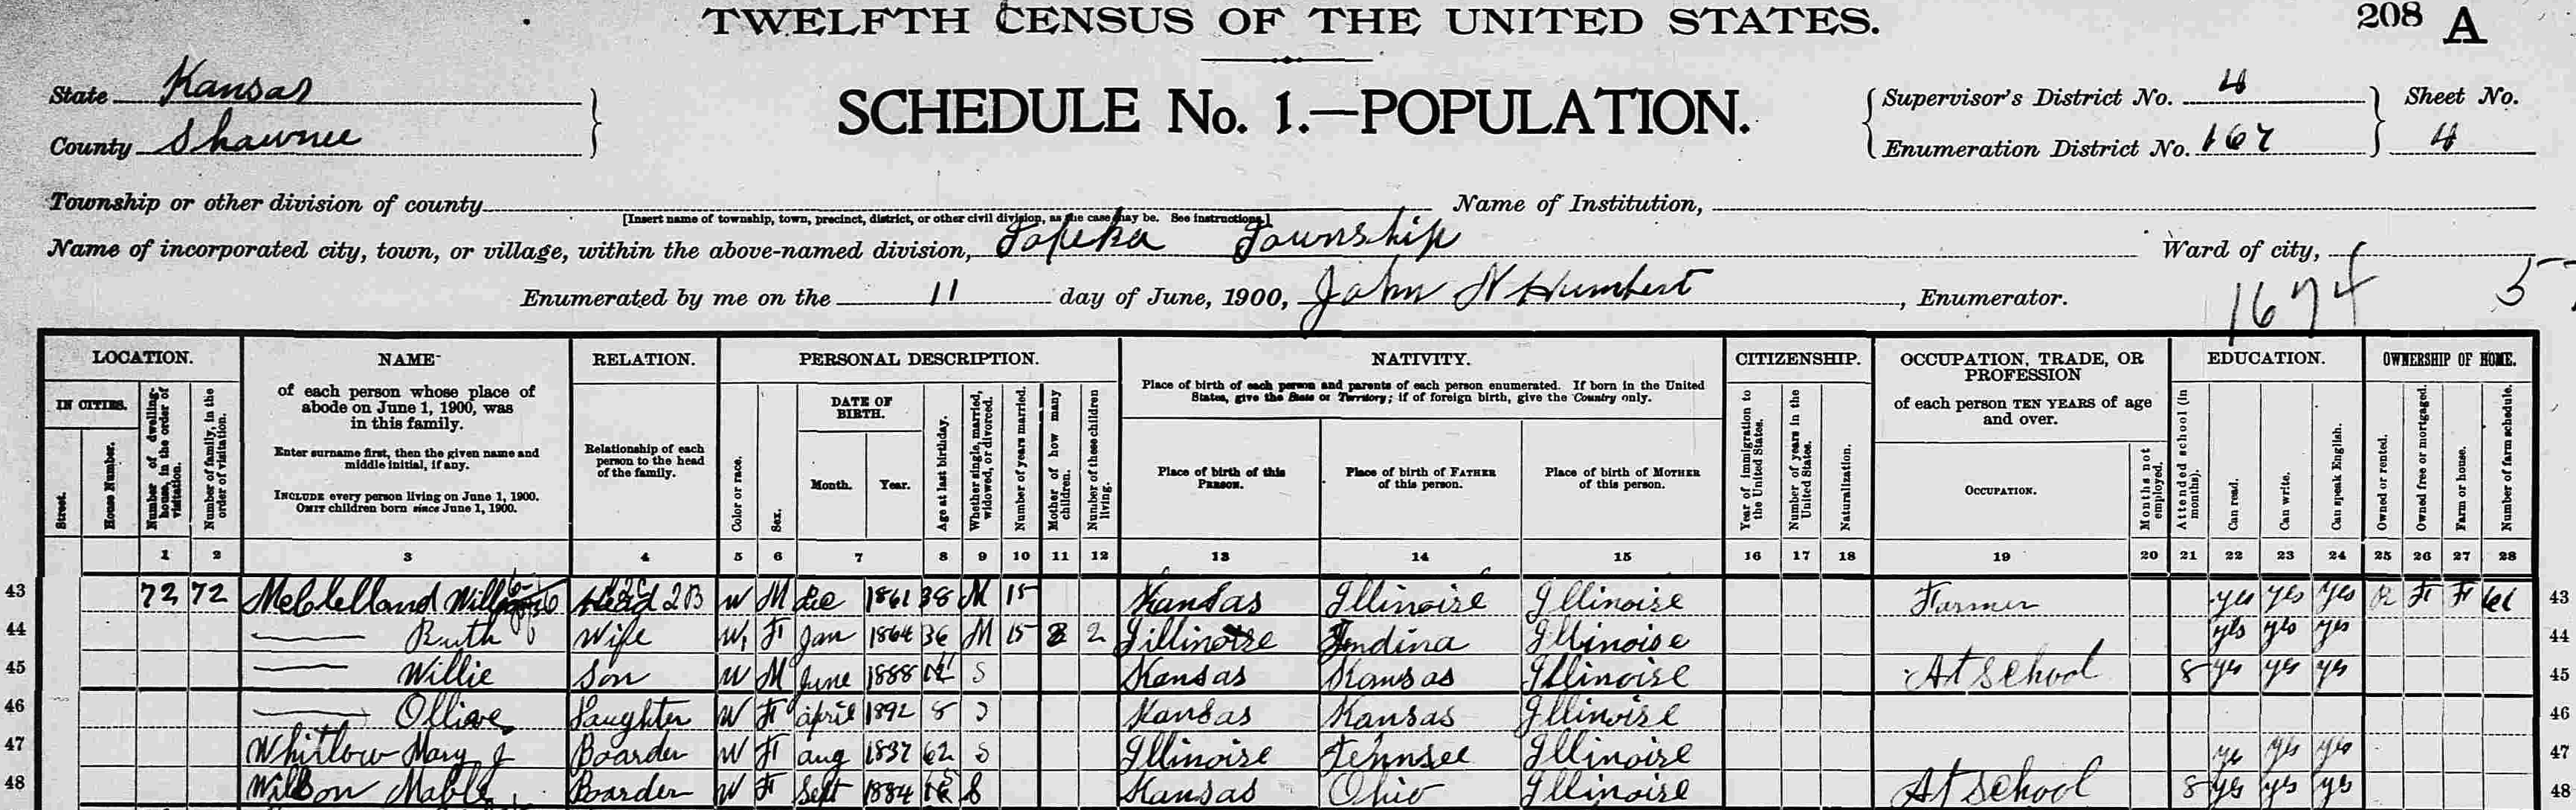 TWELFTH CENSUS OF THE UNITED STATES.
208 A
State Kansas
County Shawnee
SCHEDULE No. 1.—POPULATION.
Supervisor's District No. 4
Enumeration District No. 167
Sheet No.
4
Township or other division of county
[Insert name of township, town, precinct, district, or other civil division, as the case may be. See instructions.]
Name of Institution,
Name of incorporated city, town, or village, within the above-named division, Topeka Township
Ward of city,
Enumerated by me on the 11 day of June, 1900, John N Humbert, Enumerator.
1674
5
LOCATION.
IN CITIES.
Street.
House Number.
Number of dwelling-house, in the order of visitation.
Number of family, in the order of visitation.
NAME
of each person whose place of abode on June 1, 1900, was in this family.
Enter surname first, then the given name and middle initial, if any.
INCLUDE every person living on June 1, 1900.
OMIT children born since June 1, 1900.
RELATION.
Relationship of each person to the head of the family.
PERSONAL DESCRIPTION.
Color or race.
Sex.
DATE OF BIRTH.
Month.
Year.
Age at last birthday.
Whether single, married, widowed, or divorced.
Number of years married.
Mother of how many children.
Number of these children living.
NATIVITY.
Place of birth of each person and parents of each person enumerated. If born in the United States, give the State or Territory; if of foreign birth, give the Country only.
Place of birth of this PERSON.
Place of birth of FATHER of this person.
Place of birth of MOTHER of this person.
CITIZENSHIP.
Year of immigration to the United States.
Number of years in the United States.
Naturalization.
OCCUPATION, TRADE, OR PROFESSION
of each person TEN YEARS of age and over.
OCCUPATION.
Months not employed.
EDUCATION.
Attended school (in months).
Can read.
Can write.
Can speak English.
OWNERSHIP OF HOME.
Owned or rented.
Owned free or mortgaged.
Farm or house.
Number of farm schedule.
1 2 3 4 5 6 7 8 9 10 11 12 13 14 15 16 17 18 19 20 21 22 23 24 25 26 27 28
43 72 72 McClelland Head W M Dec 1861 38 M 15 Kansas Illinoise Illinoise Farmer yes yes yes R F F 61 43
44 Ruth Wife W F Jan 1864 36 M 15 2 2 Fendina Illinoise yes yes yes 44
45 Willie Son W M June 1888 S Kansas Kansas Illinoise At School 8 yes yes yes 45
46 Ollive Daughter W F april 1892 8 S Kansas Kansas Illinoise 46
47 Whitlow Mary J Boarder W F aug 1837 62 S Illinoise Tennsee Illinoise ye yes yes 47
48 Wilson Mable Boarder W F Sept 1884 S Kansas Ohio Illinoise At School 8 yes yes yes 48